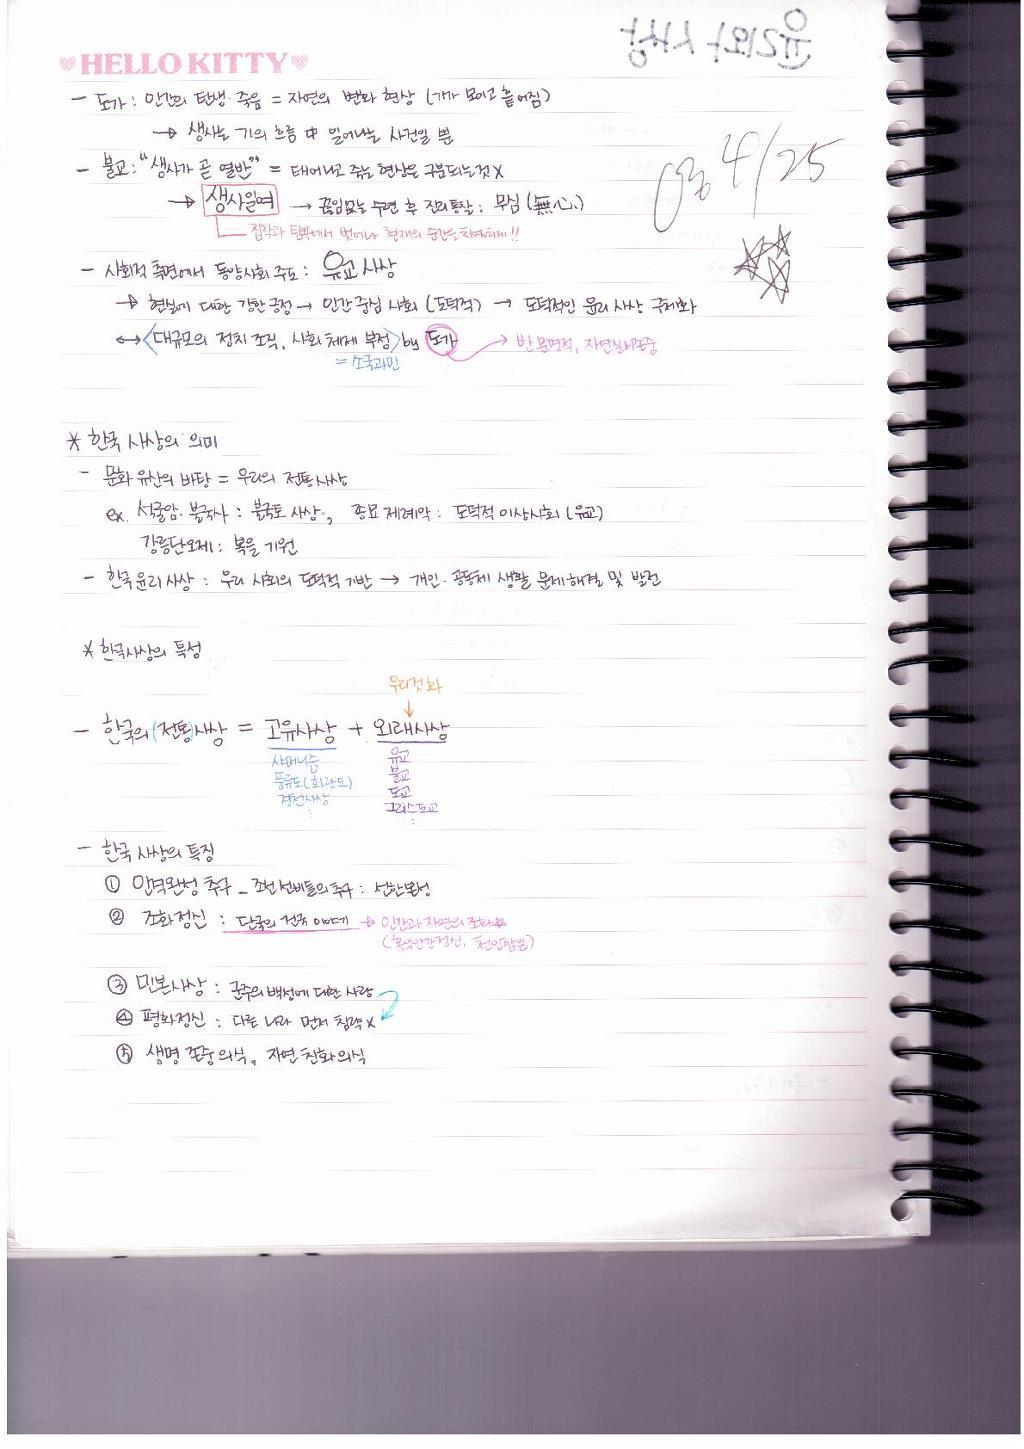 윤리와 사상
HELLO KITTY
- 도가 : 인간의 탄생·죽음 = 자연의 변화 현상 (기가 모이고 흩어짐)
→ 생사는 기의 흐름 中 일어나는 사건일 뿐
4/25
- 불교 : "생사가 곧 열반" = 태어나고 죽는 현상은 구분되는것 X
→ 생사일여 → 끊임없는 수련 후 진리통찰 : 무심 (無心)
집착과 탐욕에서 벗어나 현재의 순간을 !!
- 사회적 측면에서 동양사회 주도 : 유교 사상
→ 현실에 대한 강한 긍정 → 인간 중심 사회 (도덕적) → 도덕적인 윤리 사상 구체화
↔ <대규모의 정치 조직, 사회 체제 부정> by 도가 → 반문명적, 자연질서존중
= 소국과민
* 한국 사상의 의미
- 문화 유산의 바탕 = 우리의 전통사상
ex. 석굴암·불국사 : 불국토 사상, 종묘 제례악 : 도덕적 이상사회 (유교)
강릉단오제 : 복을 기원
- 한국 윤리 사상 : 우리 사회의 도덕적 기반 → 개인·공동체 생활 문제 해결 및 발전
* 한국사상의 특성
우리것화
↓
- 한국의 (전통)사상 = 고유사상 + 외래사상
샤머니즘 유교
풍류도(화랑도) 불교
경천사상 도교
: 그리스도교
:
- 한국 사상의 특징
① 인격완성 추구 - 조선 선비들의 추구 :
② 조화정신 : 단군의 건국 이야기 → 인간과 자연의 조화
(홍익인간정신, 천인합일)
③ 민본사상 : 군주의 백성에 대한 사랑
④ 평화정신 : 다른 나라 먼저 침략 X
⑤ 생명 존중 의식, 자연 친화 의식